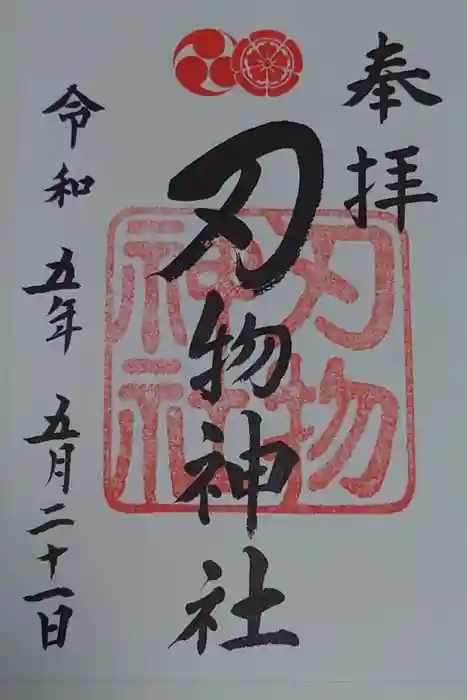 奉拝
刃物神社
刃物
神社
令和五年五月二十一日